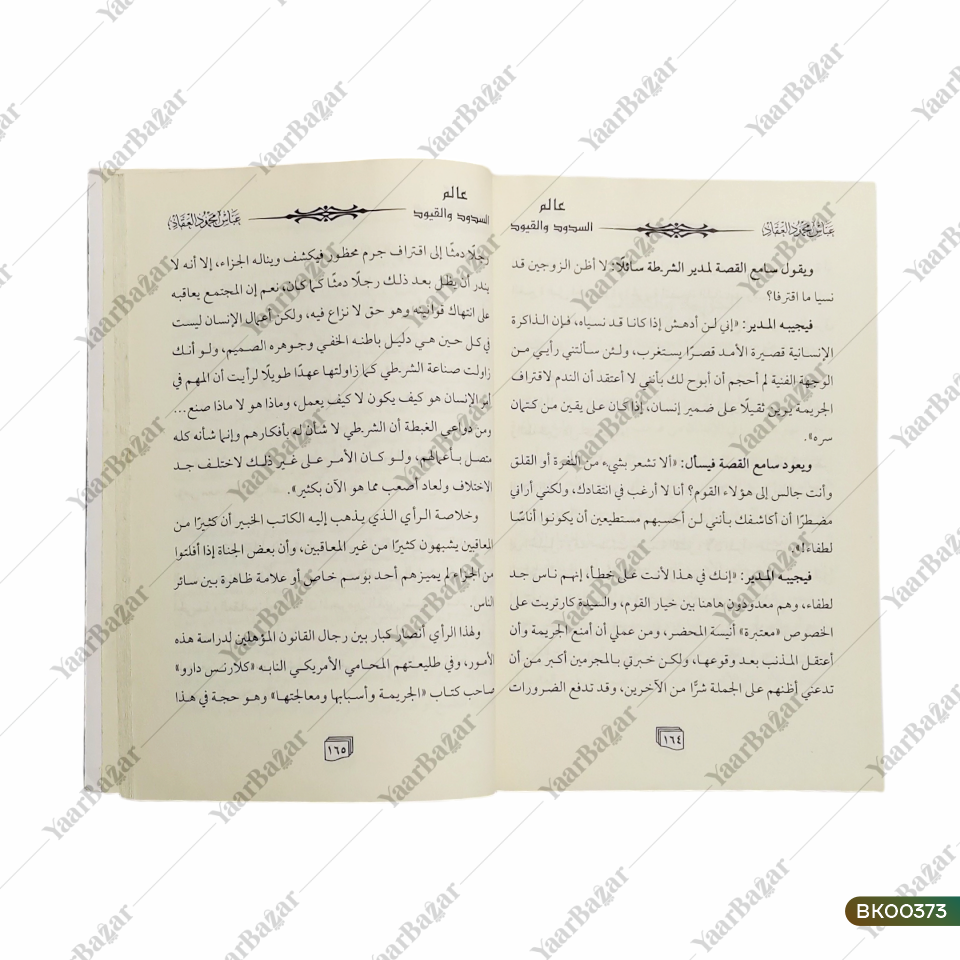 عالم
السدود والقيود
عباس محمود العقاد
ويقول سامع القصة لمدير الشرطة سائلًا: لا أظن الزوجين قد
نسيا ما اقترفا؟
فيجيبه المدير: «إني لن أدهش إذا كانا قد نسياه، فإن الذاكرة
الإنسانية قصيرة الأمد قصرًا يستغرب، ولئن سألتني رأيي من
الوجهة الفنية لم أحجم أن أبوح لك بأنني لا أعتقد أن الندم لاقتراف
الجريمة يرين ثقيلًا على ضمير إنسان، إذا كان على يقين من كتمان
سره».
ويعود سامع القصة فيسأل: «ألا تشعر بشيء من النفرة أو القلق
وأنت جالس إلى هؤلاء القوم؟ أنا لا أرغب في انتقادك، ولكني أراني
مضطرًا أن أكاشفك بأنني لن أحسبهم مستطيعين أن يكونوا أناسًا
لطفاء!».
فيجيبه المدير: «إنك في هذا لأنت على خطأ، إنهم ناس جد
لطفاء، وهم معدودون هاهنا بين خيار القوم، والسيدة كارتريت على
الخصوص «معتبرة» أنيسة المحضر، ومن عملي أن أمنع الجريمة وأن
أعتقل المذنب بعد وقوعها، ولكن خبرتي بالمجرمين أكبر من أن
تدعني أظنهم على الجملة شرًّا من الآخرين، وقد تدفع الضرورات
١٦٤
عالم
السدود والقيود
عباس محمود العقاد
رجلًا دمثًا إلى اقتراف جرم محظور فيكشف ويناله الجزاء، إلا أنه لا
يندر أن يظل بعد ذلك رجلًا دمثًا كما كان، نعم إن المجتمع يعاقبه
على انتهاك قوانينه وهو حق لا نزاع فيه، ولكن أعمال الإنسان ليست
في كل حين هي دليل باطنه الخفي وجوهره الصميم، ولو أنك
زاولت صناعة الشرطي كما زاولتها عهدًا طويلًا لرأيت أن المهم في
أمر الإنسان هو كيف يكون لا كيف يعمل، وماذا هو لا ماذا صنع...
ومن دواعي الغبطة أن الشرطي لا شأن له بأفكارهم وإنما شأنه كله
متصل بأعمالهم، ولو كان الأمر على غير ذلك لاختلف جد
الاختلاف ولعاد أصعب مما هو الآن بكثير».
وخلاصة الرأي الذي يذهب إليه الكاتب الخبير أن كثيرًا من
المعاقبين يشبهون كثيرًا من غير المعاقبين، وأن بعض الجناة إذا أفلتوا
من الجزاء لم يميزهم أحد بوسم خاص أو علامة ظاهرة بين سائر
الناس.
ولهذا الرأي أنصار كبار بين رجال القانون المؤهلين لدراسة هذه
الأمور، وفي طليعتهم المحامي الأمريكي النابه «كلارنس دارو»
صاحب كتاب «الجريمة وأسبابها ومعالجتها» وهو حجة في هذا
١٦٥
YaarBazar
BK00373